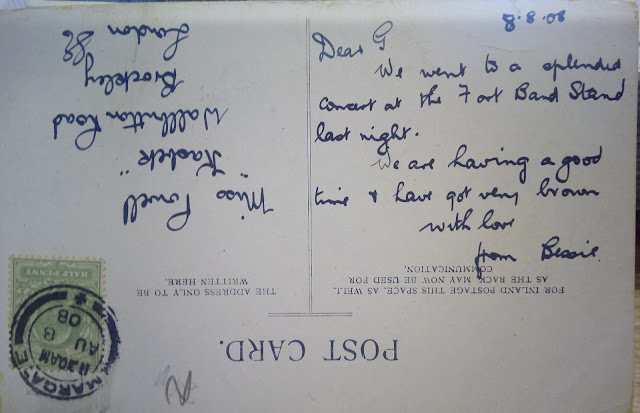 8.8.08
Dear G
We went to a splendid
concert at the Fort Band Stand
last night.
We are having a good
time & have got very brown
with love
from Bessie.
POST CARD.
FOR INLAND POSTAGE THIS SPACE, AS WELL
AS THE BACK, MAY NOW BE USED FOR
COMMUNICATION.
THE ADDRESS ONLY TO BE
WRITTEN HERE.
Miss Powell
Wallbutton Road
Brockley
London
HALF PENNY
MARGATE
11 30AM
AU 8
08